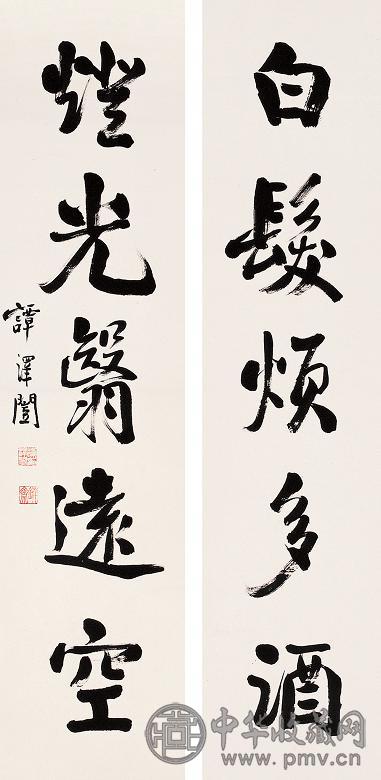 白髮煩多酒
燈光翳遠空
譚澤闓
中华收藏网
www.pmv.cn